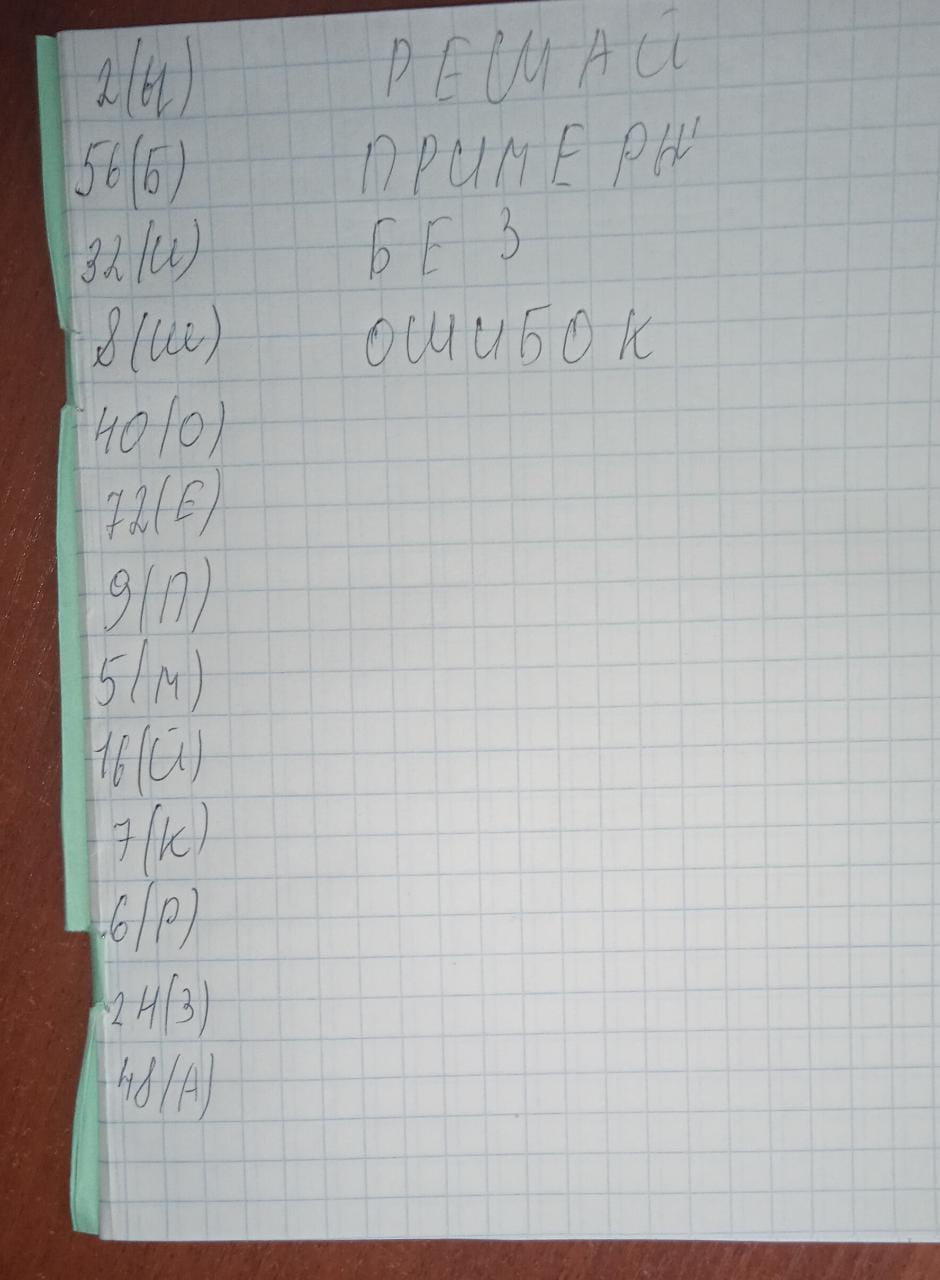 2(Ы) РЕШАЙ
56(Б) ПРИМЕРЫ
32(И) БЕЗ
8(Ш) ОШИБОК
40(О)
72(Е)
9(П)
5(М)
16(Й)
7(К)
6(Р)
24(З)
48(А)